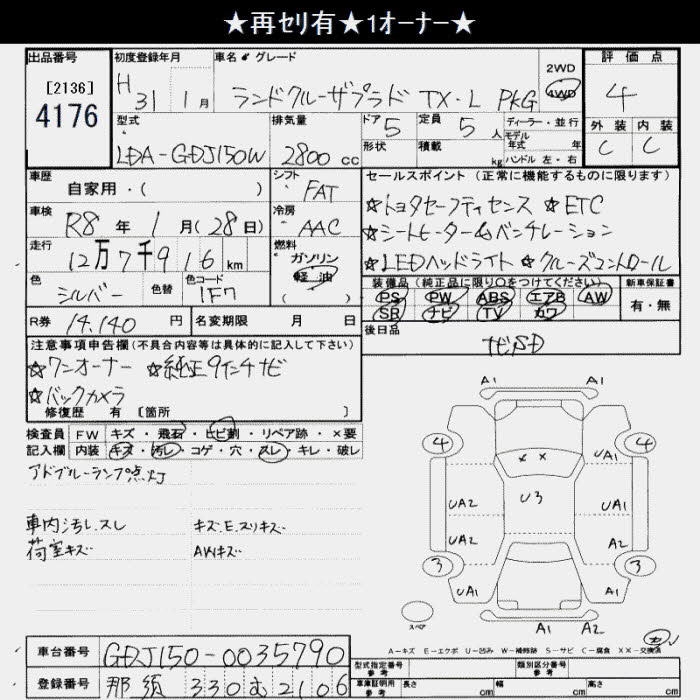 ★再セリ有★1オーナー★
出品番号 初度登録年月 車名・グレード 評価点
[2136] H 31 1月 ランドクルーザプラド TX・L PKG 2WD 4WD 4
4176 型式 排気量 ドア 5 定員 5人 ディーラー・並行 外装 内装
LDA-GDJ150W 2800cc 形状 積載 kg モデル年式 年 ハンドル 左・右 C C
車歴 自家用・( ) シフト FAT セールスポイント (正常に機能するものに限ります)
車検 R8年 1月(28日) 冷房 AAC ☆トヨタセーフティセンス ☆ETC
走行 12万7千916km 燃料 ガソリン 軽油 ☆シートヒーター&ベンチレーション
☆LEDヘッドライト ☆クルーズコントロール
色 シルバー 色替 色コード 1F7 装備品 (純正品に限り○をつけてください) 新車保証書
PS PW ABS エアB AW 有・無
SR ナビ TV カワ
R券 14,140円 名変期限 月 日 後日品
ナビSD
注意事項申告欄(不具合内容等は具体的に記入して下さい)
☆ワンオーナー ☆純正9インチナビ
☆バックカメラ
修復歴 有 [箇所 ]
検査員 FW キズ・飛石・ヒビ割・リペア跡・×要
記入欄 内装 キズ・汚レ・コゲ・穴・スレ・キレ・破レ
アドブルーランプ点灯
車内汚レ.スレ キズ.E.スリキズ
荷室キズ AWキズ
A1 A2
4 4
×× UA1
UA2 U3 UA1
UA2 A2
3 3
UA1 UA1
スペア A1 A2
A-キズ E-エクボ U-凹み W-補修跡 S-サビ C-腐食 XX-交換済
車台番号 GDJ150-0035790
登録番号 那須 330 む 2106
型式指定番号 参考 類別区分番号 参考
車庫証明用 参考 長さ cm 幅 cm 高さ cm